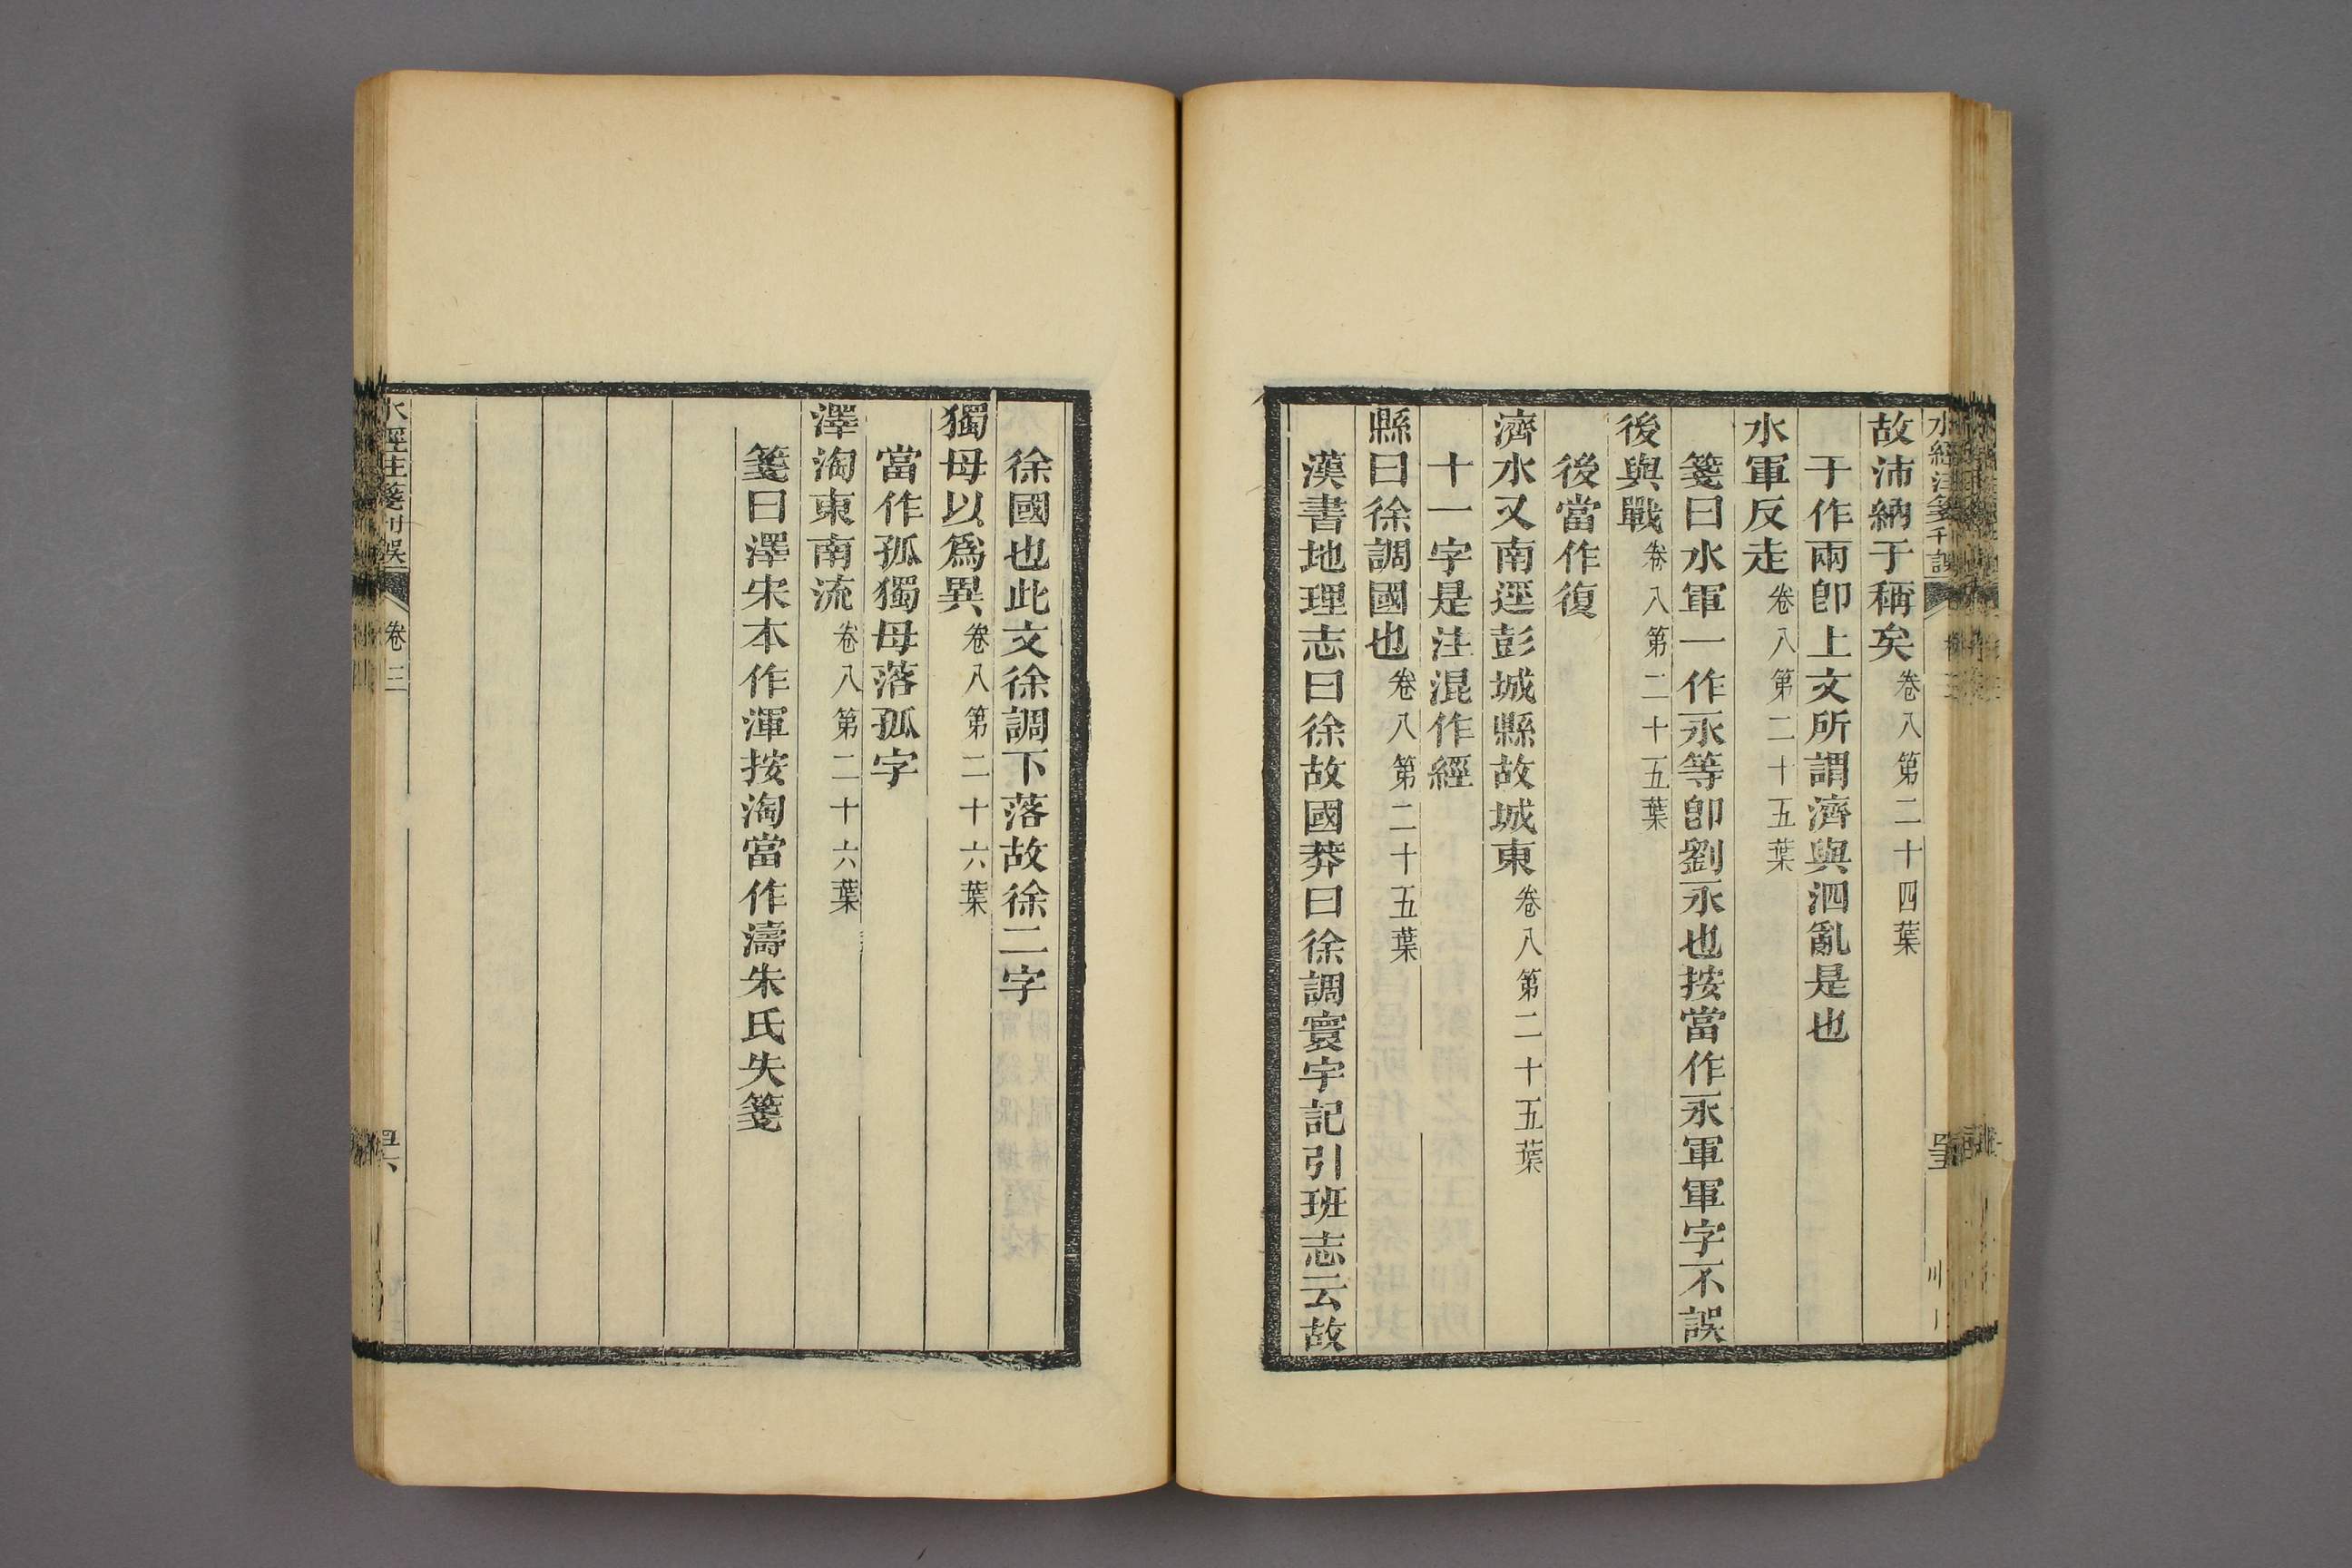 故沛納于稱矣卷八第二十四葉
于作兩卽上文所謂濟與泗亂是也
水軍反走卷八第二十五葉
箋曰水軍一作永等卽劉永也按當作永軍軍字不誤
後與戰卷八第二十五葉
後當作復
濟水又南逕彭城縣故城東卷八第二十五葉
十一字是注混作經
縣曰徐調國也卷八第二十五葉
漢書地理志曰徐故國莽曰徐調寰宇記引班志云故
徐國也此文徐調下落故徐二字
獨母以爲異卷八第二十六葉
當作孤獨母落孤字
澤淘東南流卷八第二十六葉
箋曰澤宋本作渾按淘當作濤朱氏失箋
水經注箋刊誤 卷三